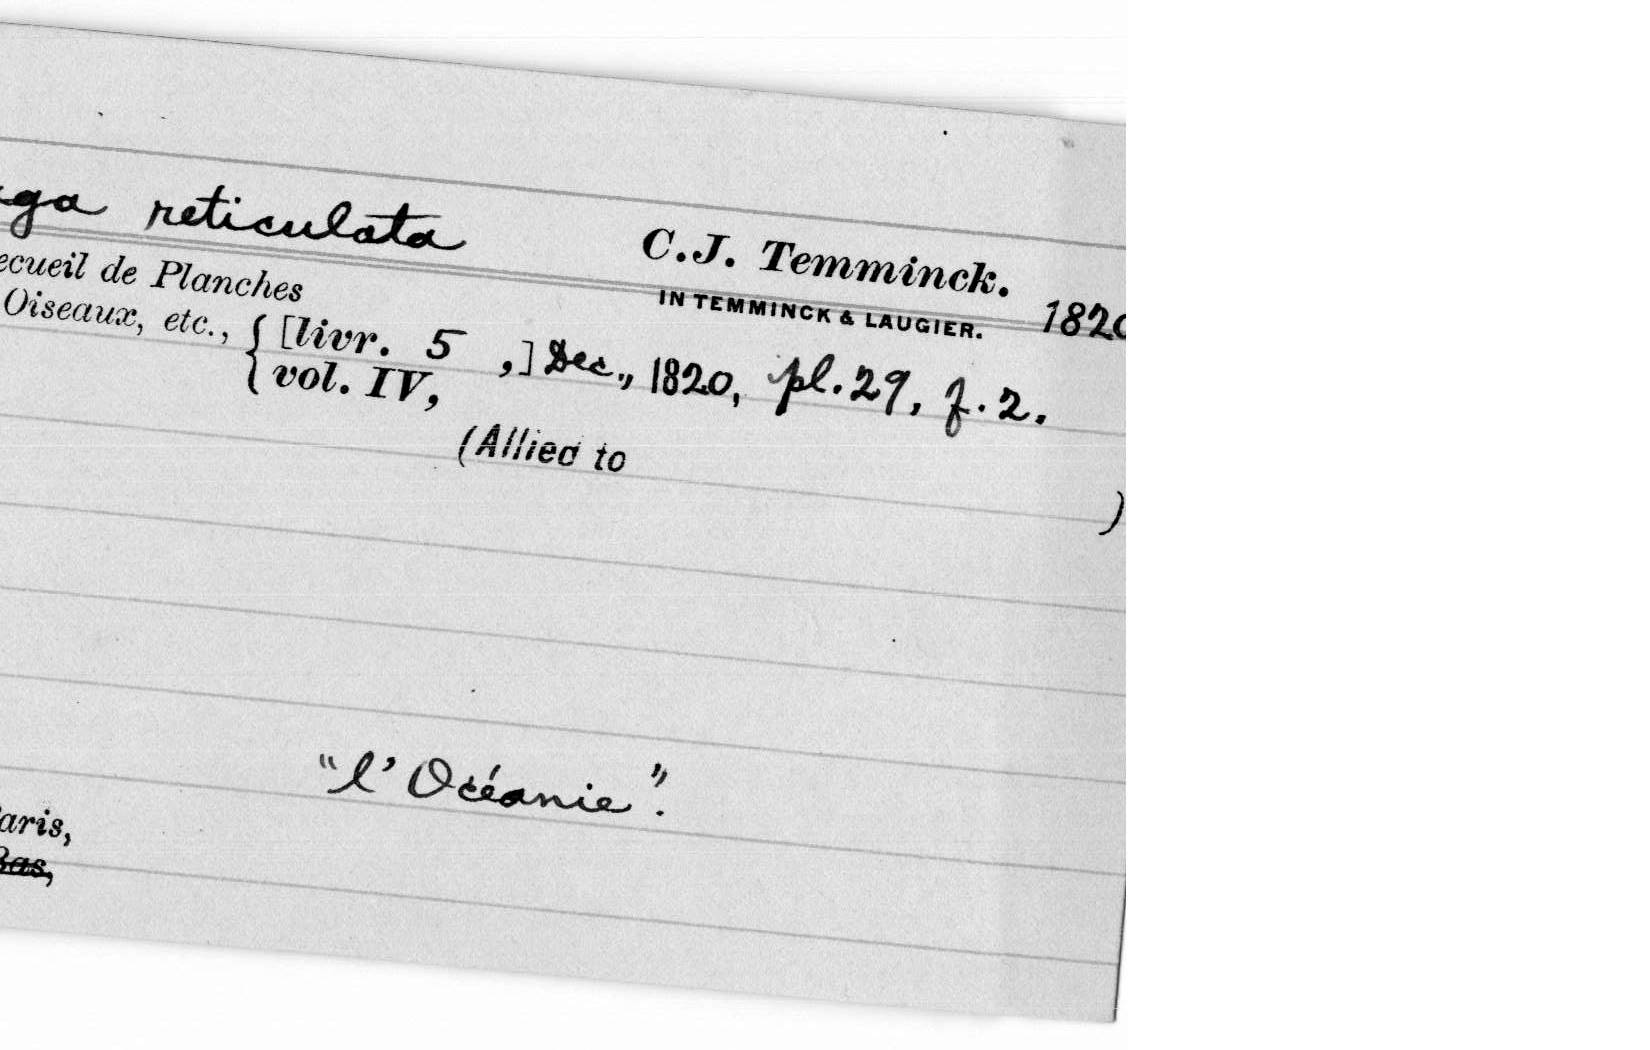 reticulata
C.J. Temminck. 1820
IN TEMMINCK & LAUGIER.
ecueil de Planches
Oiseaux, etc., { [livr. 5 ,] Dec., 1820, pl. 29, f. 2.
vol. IV,
(Allied to )
"l'Océanie".
aris,
Bas,